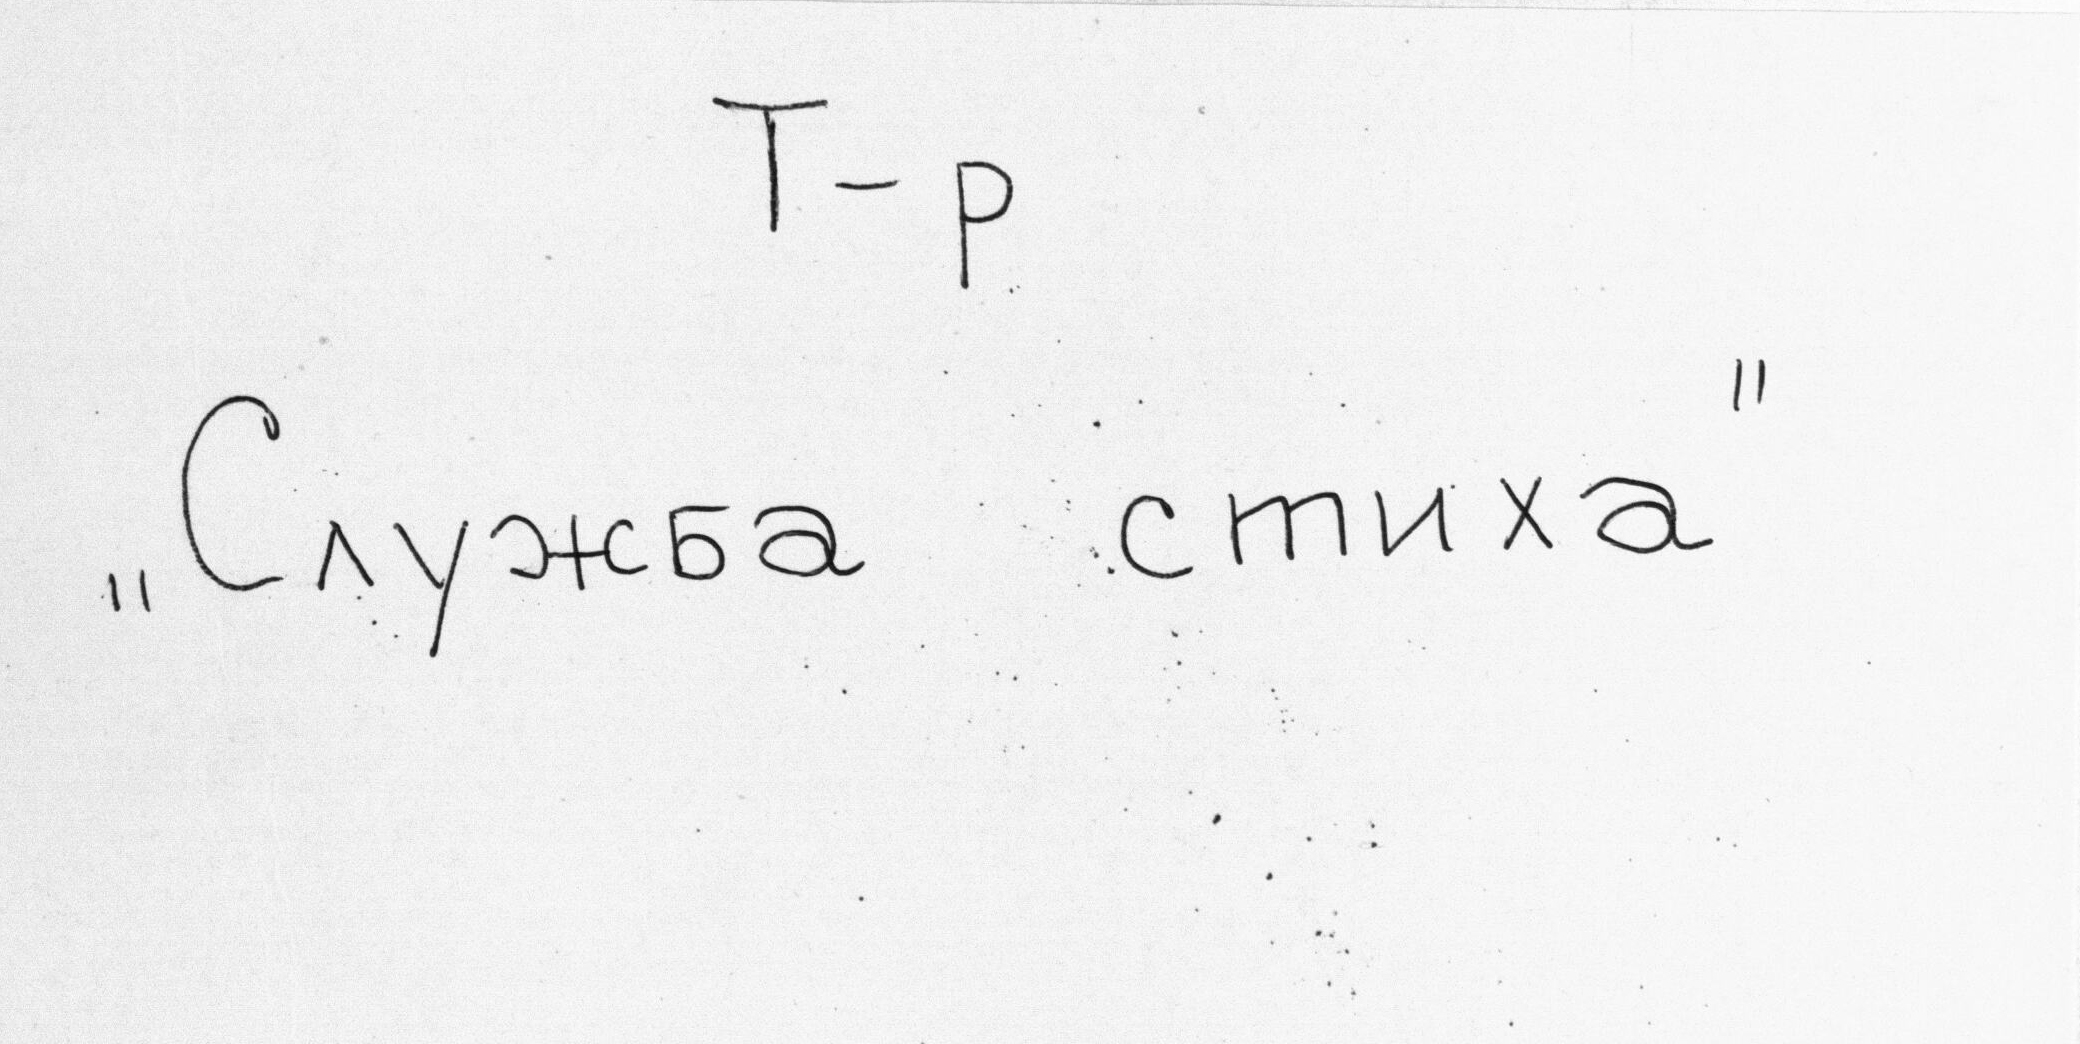 Т-р
„Служба стиха"